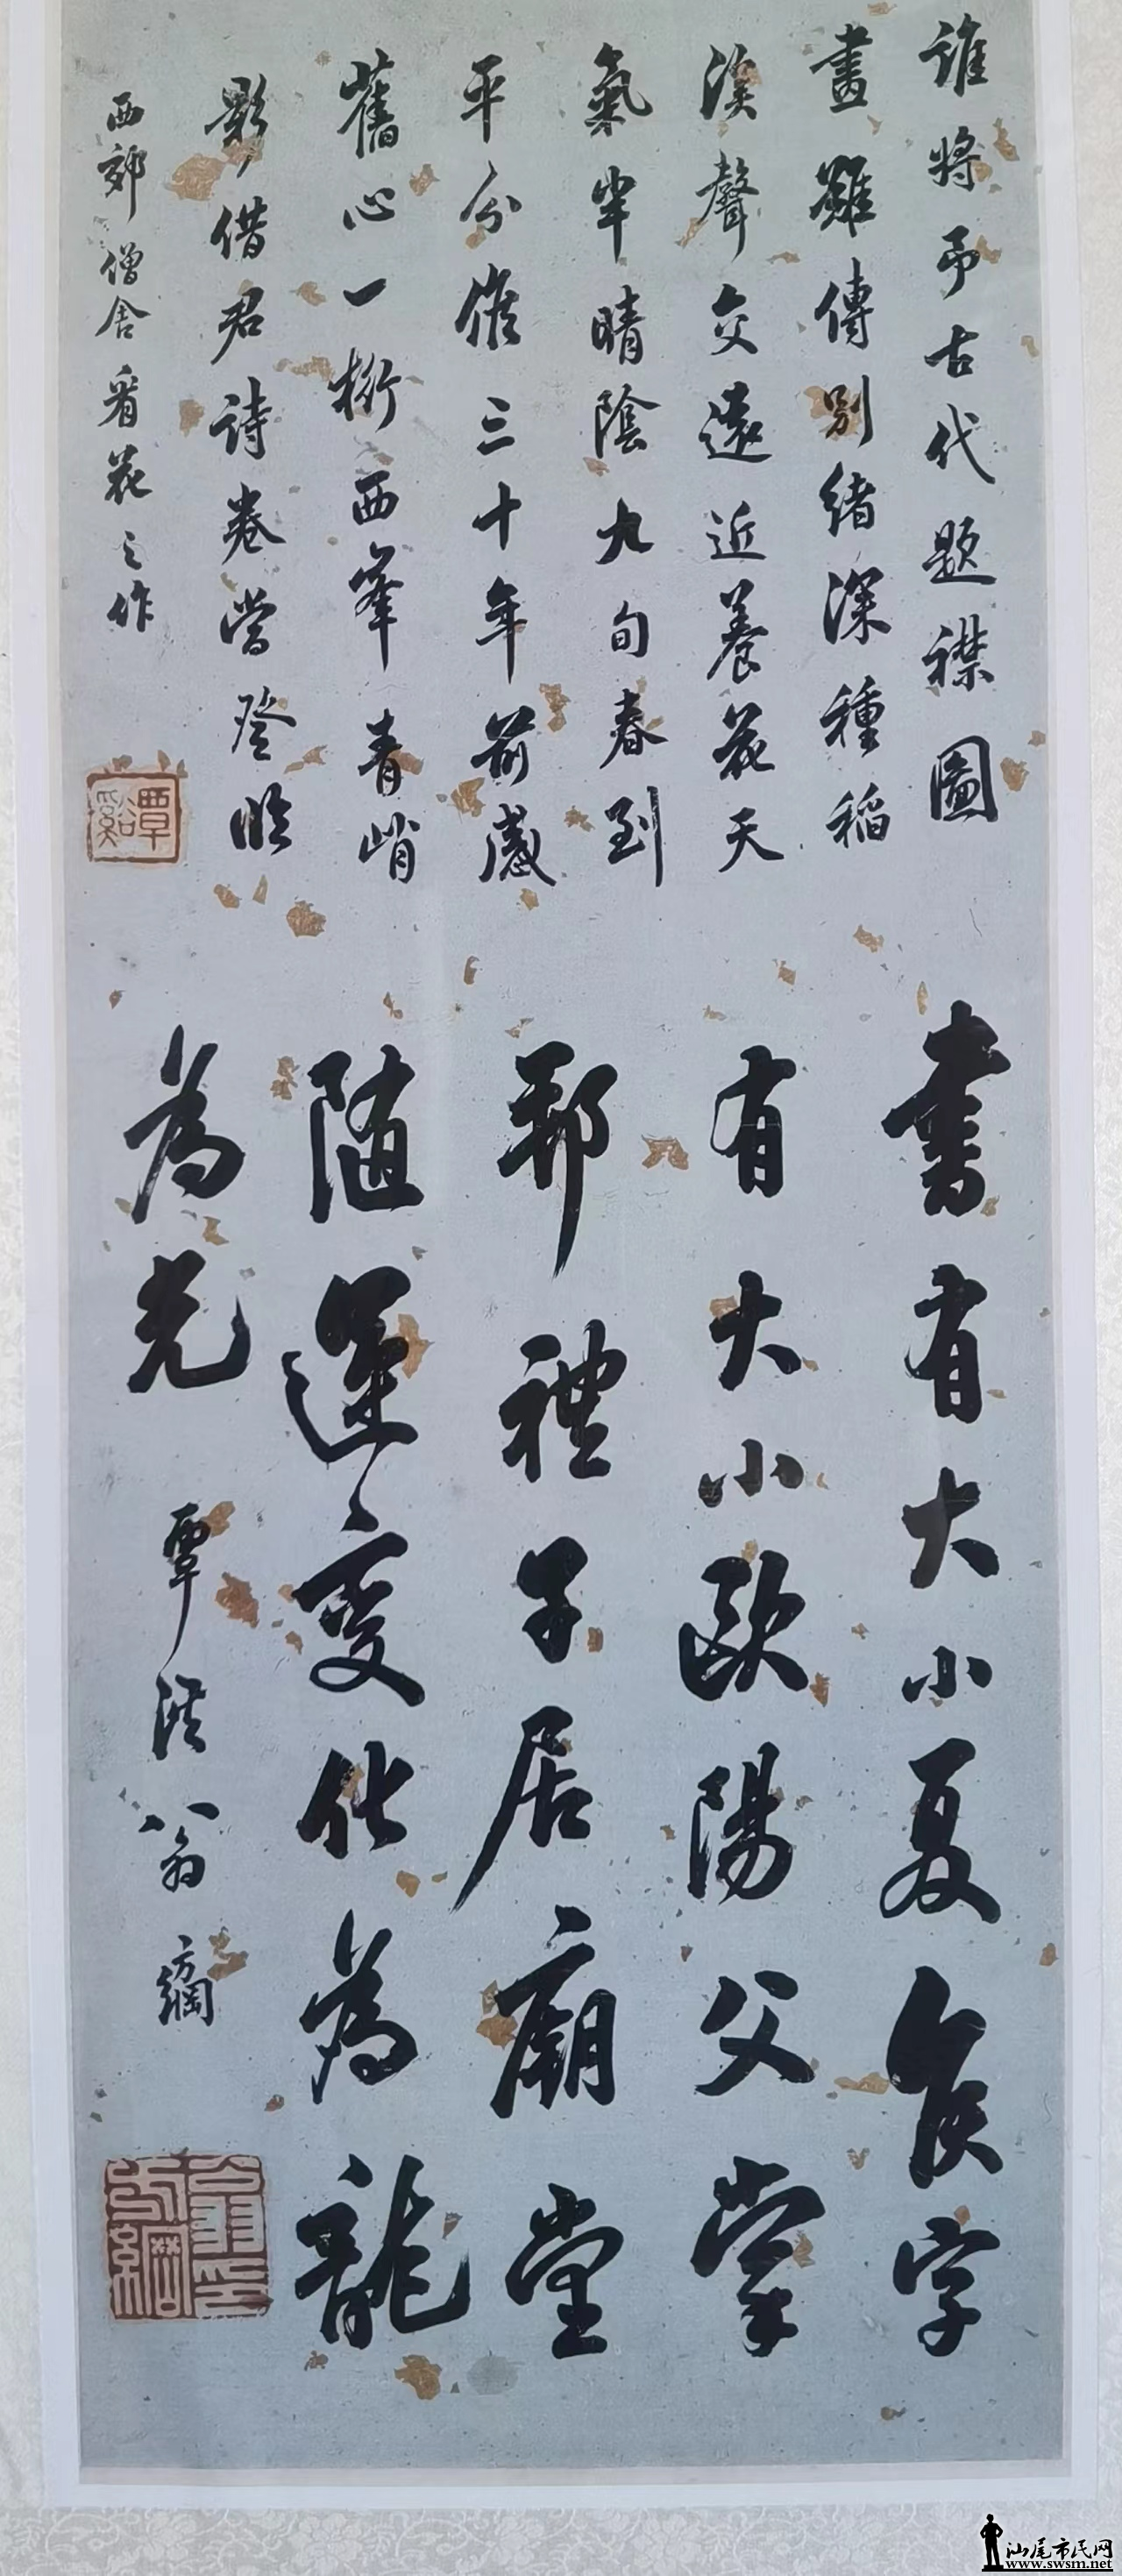 誰將弔古代題襟圖
畫難傳別緒深種稻
溪聲交遠近養花天
氣半晴陰九旬春到
平分候三十年前感
舊心一桁西峯青峭
影借君詩卷當登臨
西郊僧舍看花之作
覃谿
書有大小夏侯字
有大小歐陽父掌
邦禮子居廟堂
隨運變化為龍
為光
覃溪翁方綱
翁方綱印
汕尾市民网
www.swsm.net